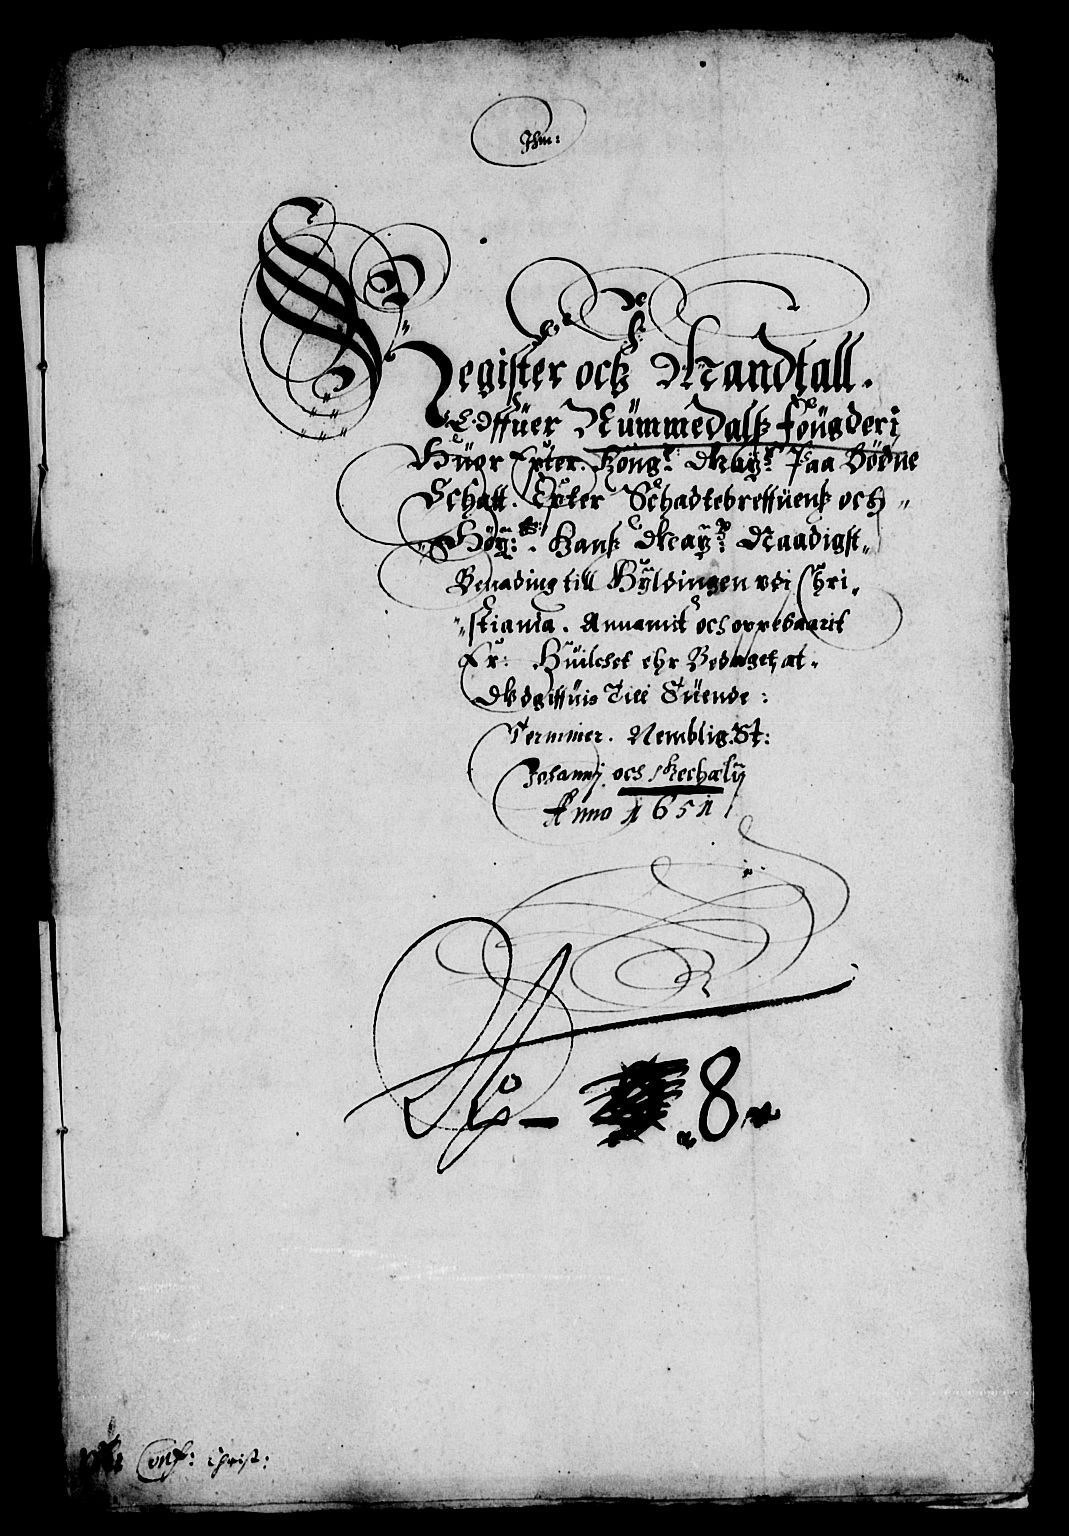 Jhm:
Register och Mandtall.
Offuer Nümmedalß Foügderi
Hüor Epter. Kong: May: Paa Bödne
Schatt. Epter Schadtebreffüenß och
Höy: Hanß May: Naadigst
Benading till Hÿldingen vdi Chri-
stiania. Annamit och oppebaarit
Er: Huilchet ehr Bedaget at.
Vdgiffuis Till Tüende:
Terminer. Nemblig. St:
Johannj och Mechælÿ
Anno 1651
No - 8
Conf: Christ: